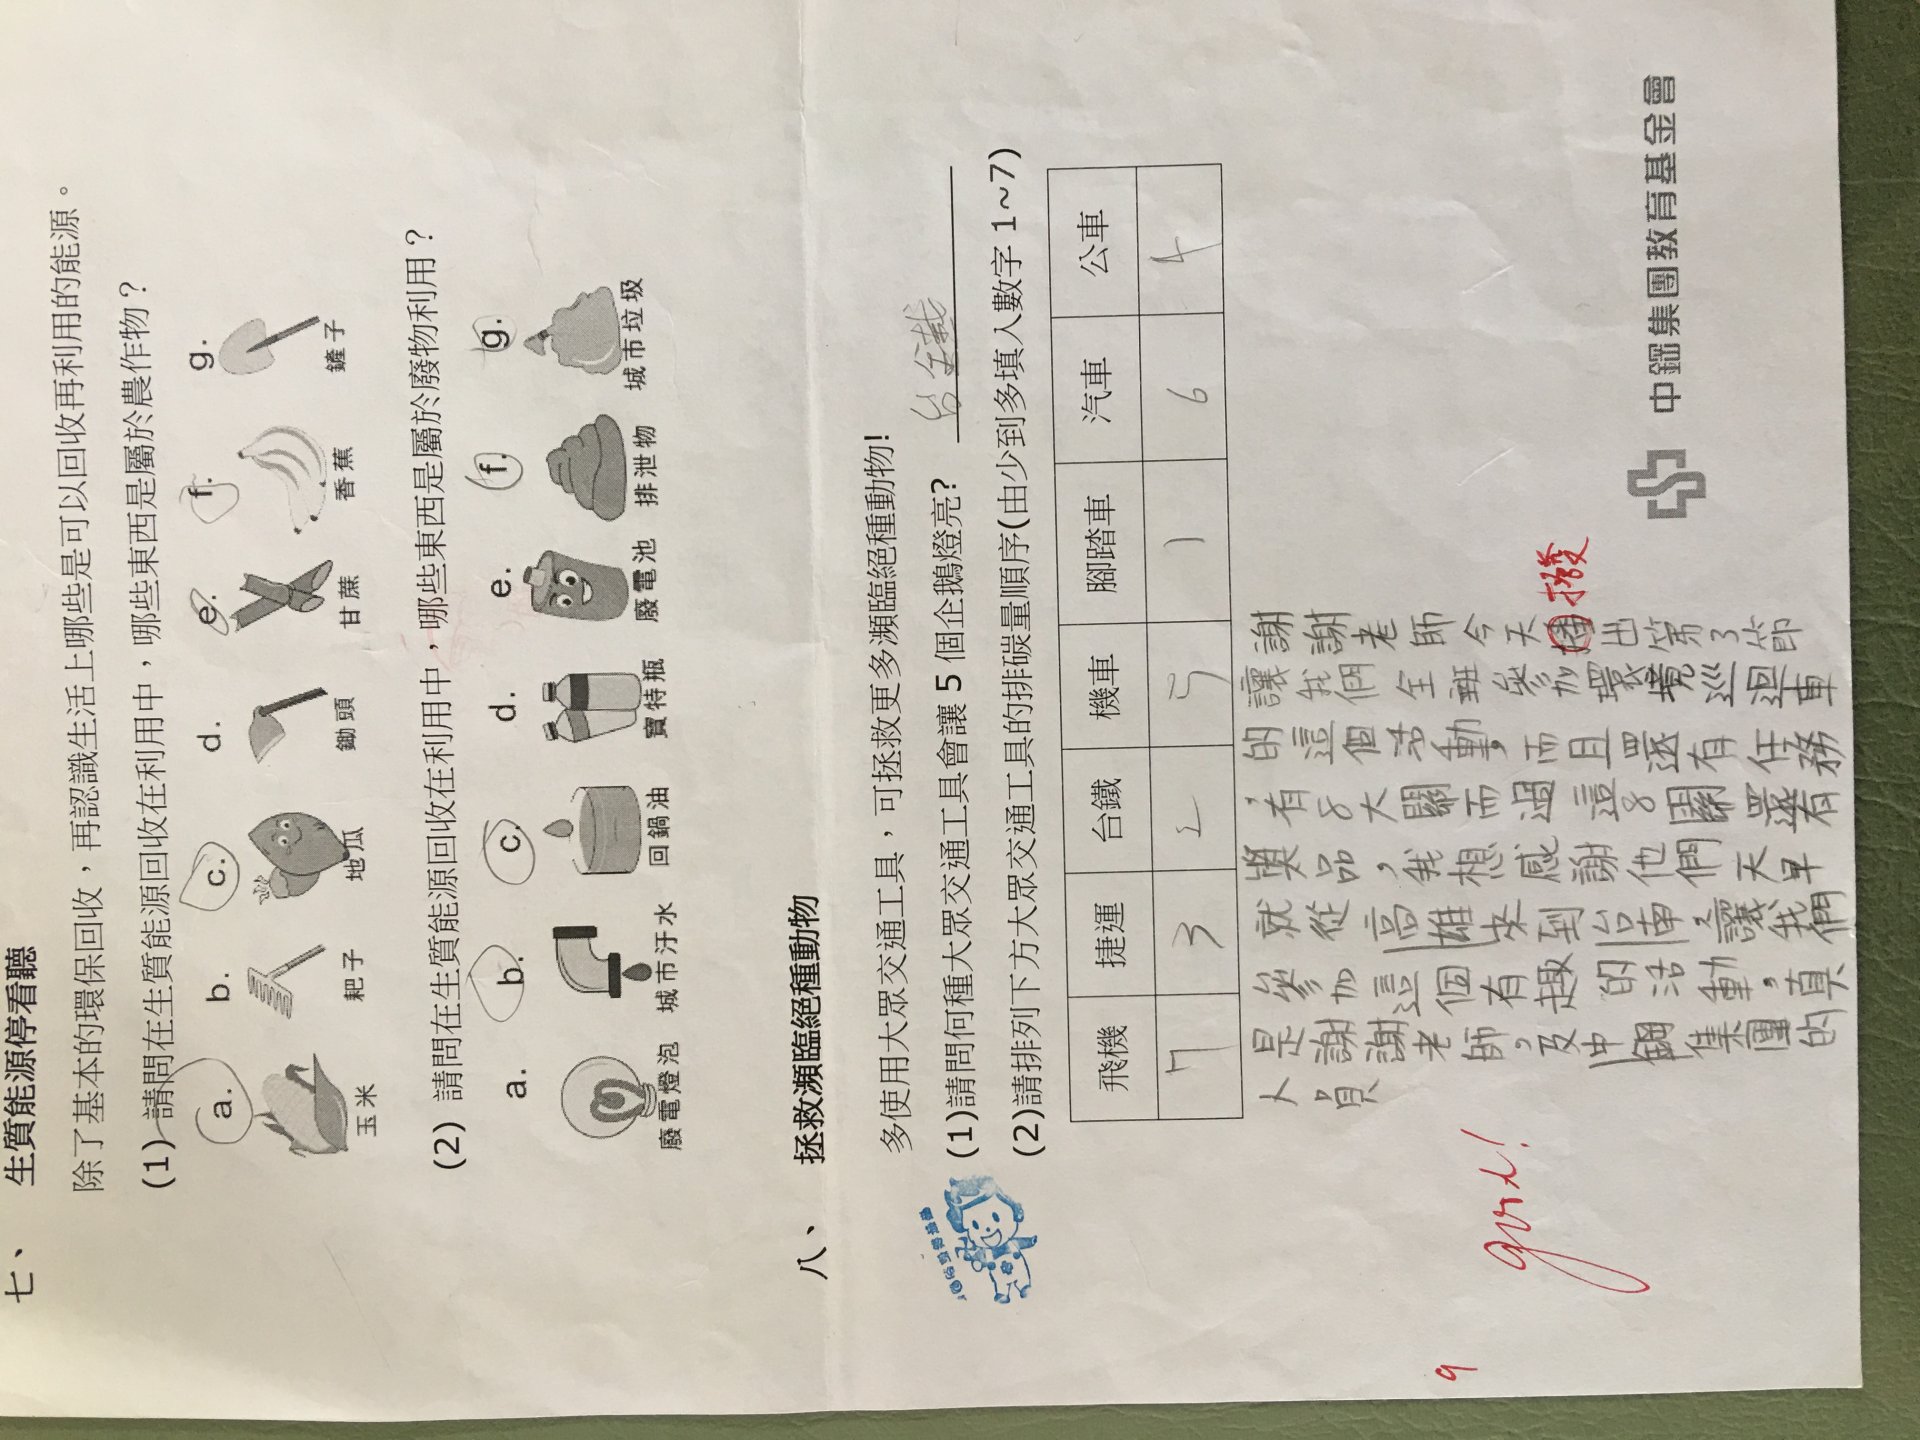 七、 生質能源停看聽
除了基本的環保回收，再認識生活上哪些是可以回收再利用的能源。
(1) 請問在生質能源回收在利用中，哪些東西是屬於農作物？
a. b. c. d. e. f. g.
玉米 耙子 地瓜 鋤頭 甘蔗 香蕉 鏟子
(2) 請問在生質能源回收在利用中，哪些東西是屬於廢物利用？
a. b. c. d. e. f. g.
廢電燈泡 城市汙水 回鍋油 寶特瓶 廢電池 排泄物 城市垃圾
八、 拯救瀕臨絕種動物
多使用大眾交通工具，可拯救更多瀕臨絕種動物!
(1)請問何種大眾交通工具會讓 5 個企鵝燈亮? 台鐵
(2)請排列下方大眾交通工具的排碳量順序(由少到多填入數字 1~7)
飛機 捷運 台鐵 機車 腳踏車 汽車 公車
7 3 2 5 1 6 4
謝謝老師今天播出第3節
撥
讓我們全班參加環境巡迴車
的這個活動，而且還有任務
有8大關而過這8關還有
獎品，我想感謝他們天早
就從高雄來到台南讓我們
參加這個有趣的活動，真
是謝謝老師，及中鋼集團的
人員
good!
9
中鋼集團教育基金會